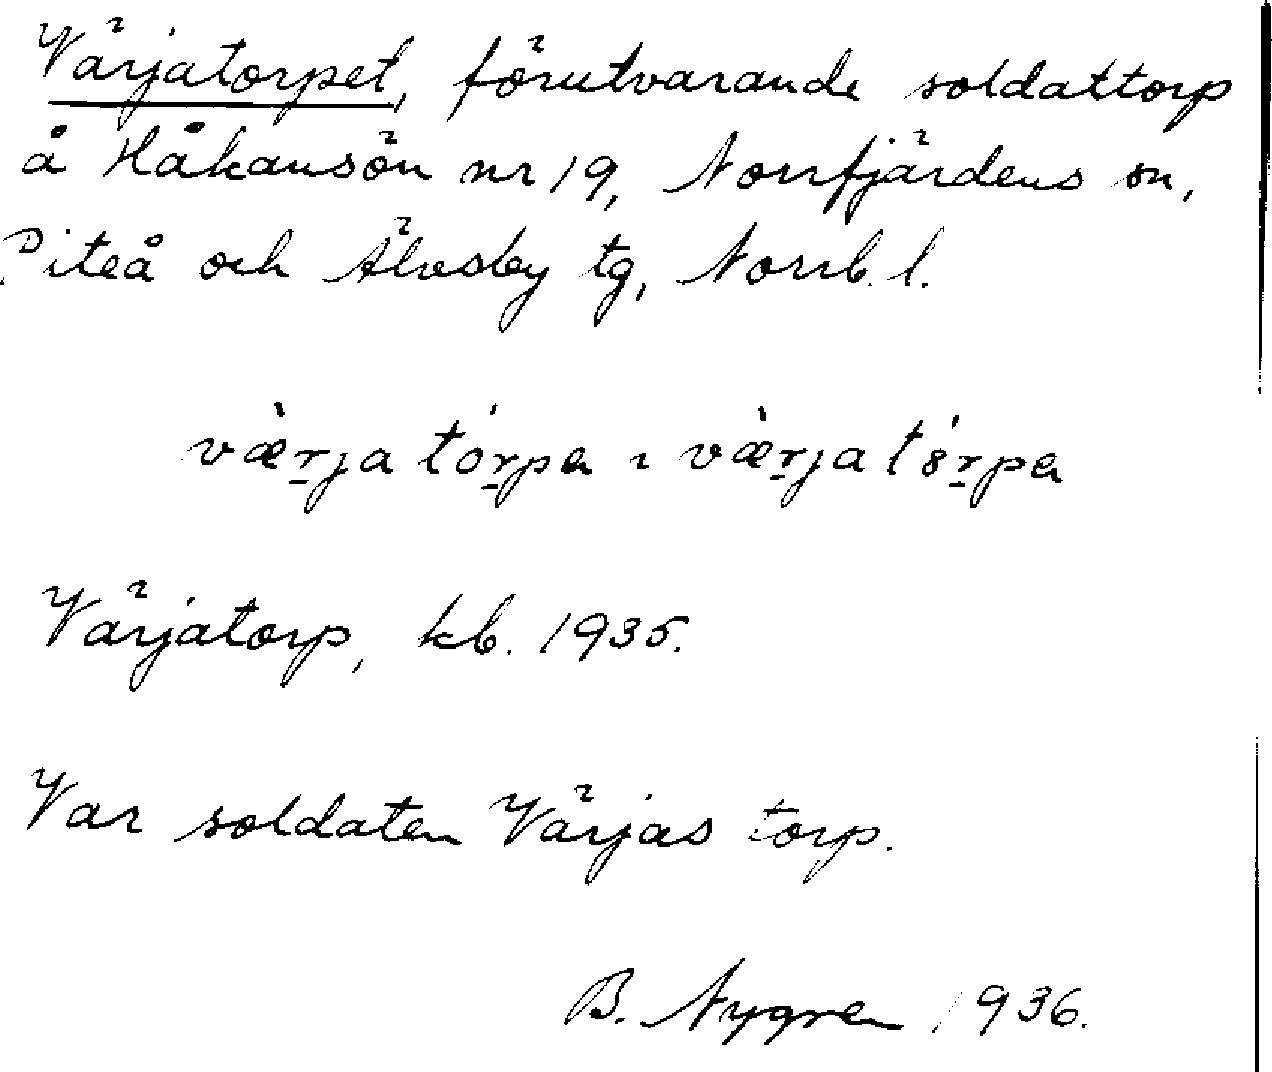 Värjatorpet, förutvarande soldattorp
å Håkansön nr 19, Norrfjärdens sn,
Piteå och Älvsby tg, Norrb. l.
væ̀r̠ja tór̠pa ı væ̀r̠ja tór̠pa
Värjatorp, kb. 1935.
Var soldaten Värjas torp.
B. Nygren 1936.